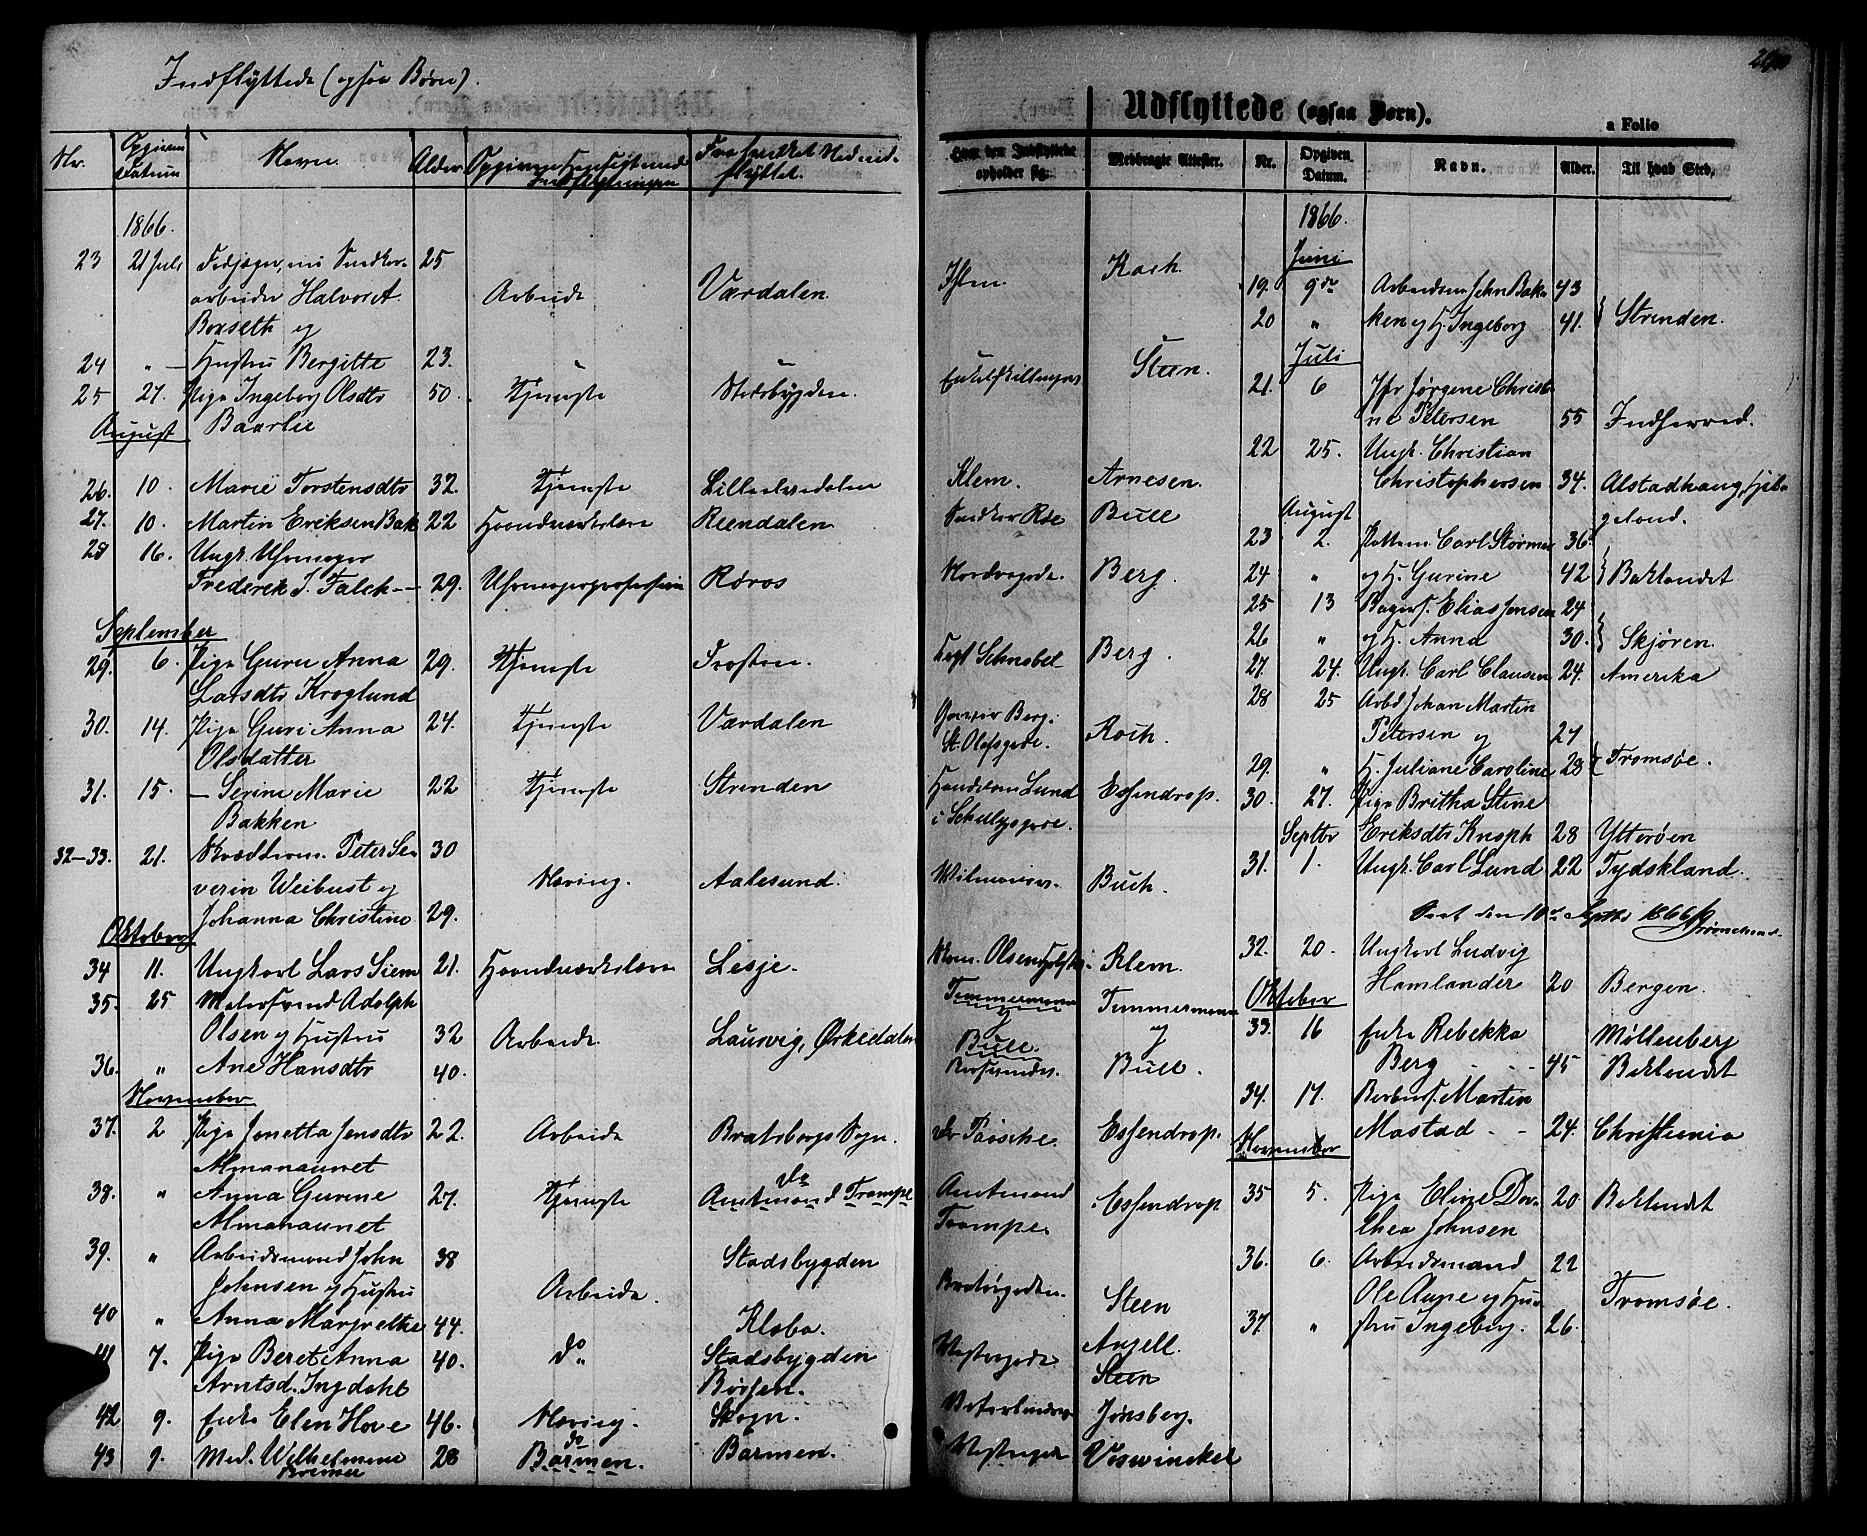 Indflyttede (ogsaa Børn).
Nr. Opgiven Datum Navn. Alder Opgiven Hensigt med Indflytningen Fra hvilket Sted indflyttet.
1866.
23 21 Juli 25
arbeider Halvor A. Arbeide Værdalen.
Borseth og
24 " Hustru Bergitte 23. "
25 27. Pige Ingeborg Olsdtr 50. Tjeneste Stadsbygden.
August Baarlie
26. 10. Marie Torstensdtr 32. Tjeneste Lilleelvedalen
27. 10. Martin Eriksen Bak 22 Haandværkslære Reendalen
28 16. Ungk. Uhrmager
Frederik T. Falck 29. Uhrmagerprofession Røros
September
29. 6. Pige Guru Anna 29. Tjeneste Frosten.
Larsdtr Kroglund
30. 14. Pige Guri Anna 24. Tjeneste Værdalen
Olsdatter
31. 15. — Serine Marie 22 Tjeneste Strinden
Bakken
32-33. 21. Peter Se- 30
verin Weibust og Næring. Aalesund.
Johanna Christine 29.
Oktober
34 11. Ungkarl Lars Siem 21. Haandværkslære Lesje.
35. 25 Malersvend Adolph
Olsen og Hustru 32 Arbeide Laurvig, Ørkedalen
36. " Ane Hansdtr 40.
November
37. 2 Pige Jonetta Jensdtr 22. Arbeide Bratsbergs Sogn.
Almanaunet
38. " Anna Gurine 27. Tjeneste do Amtmand Trampe
Almanaunet
39. " Arbeidsmand John 38 Stadsbygden
Johnsen og Hustru Arbeide.
40 " Anna Margrethe 44. Klæbo.
41 7. Pige Beret Anna 40. do Stadsbygden
Arntsd. Ingdahl Børsen.
42 9. Enke Elen Hove 46. Næring. Skogn.
43 9. Mad. Wilhelmine 28 do Barmen. Barmen.
Bremer
Udflyttede (ogsaa Børn).
a Folio
Hvor den Indflyttede opholder sig. Medbragte Attester. Nr. Opgiven Datum. Navn. Alder. Til hvad Sted.
1866.
Juni
Ihlen Koch. 19. 9de Arbeidsm. John Bak- 43
20 " ken og H. Ingeborg 41. Strinden.
Juli
Steen. 21. 6 Jfr Jørgene Christi-
ne Petersen 55 Indherred.
22 25. Ungk. Christian
Klem. Arnesen. Christophersen 34. Alstadhaug, Hel-
Snedker Røe Bull August geland.
23 2. Carl Størmer 36.
Nordregade. Berg. 24 " og H. Gurine 42 Baklandet
25 13 Bagers. Elias Jensen 24
26 " og H. Anna 30. Skjøren.
Schnobel Berg. 27. 24. Ungk. Carl Clausen 24. Amerika
28 25 Arbd Johan Martin
Berg. St. Olafsgade. Koch. Petersen og 27
29. " H. Juliane Caroline 28 Tromsøe.
Handelsm Lund Essendrop. 30. 27. Pige Britha Stine
i Schultzgade. Septbr Eriksdtr Knoph 28 Ytterøen
31. 1. Ungk. Carl Lund 22 Tydskland.
Buch.
Seet den 10de Septbr 1866
Olsen Klem. 32. 20. Ungkarl Ludvig
Oktober Hamlander 20 Bergen.
Timmermann Timmermann 33. 16 Enke Rebekka Møllenberg
og og Berg 45 Baklandet
Bull. Bull.
34. 17. Martin
Essendrop. Mastad 24. Christiania
November
Amtmand Essendrop 35 5. Pige Eline Do- 20 Baklandet
Trampe. rthea Johnsen
36. 6. Arbeidsmand 22
Bratørgaden. Steen Ole Aune og Hu- Tromsøe.
37 " stru Ingeborg. 26.
Vestergade Angell.
Steen
Jønsberg.
Voswinckel